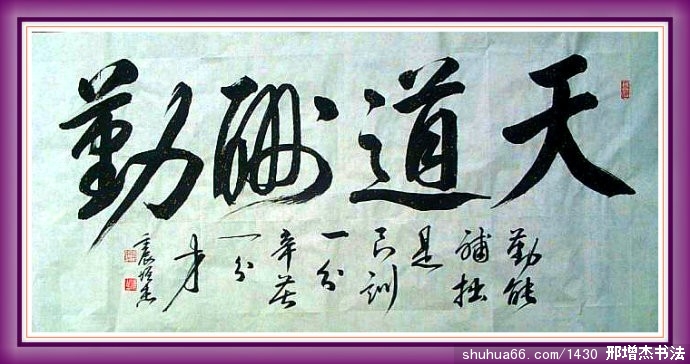 天道酬勤
勤能
補拙
是
良訓
一分
辛苦
一分
才
shuhua66.com/1430 邢增杰书法